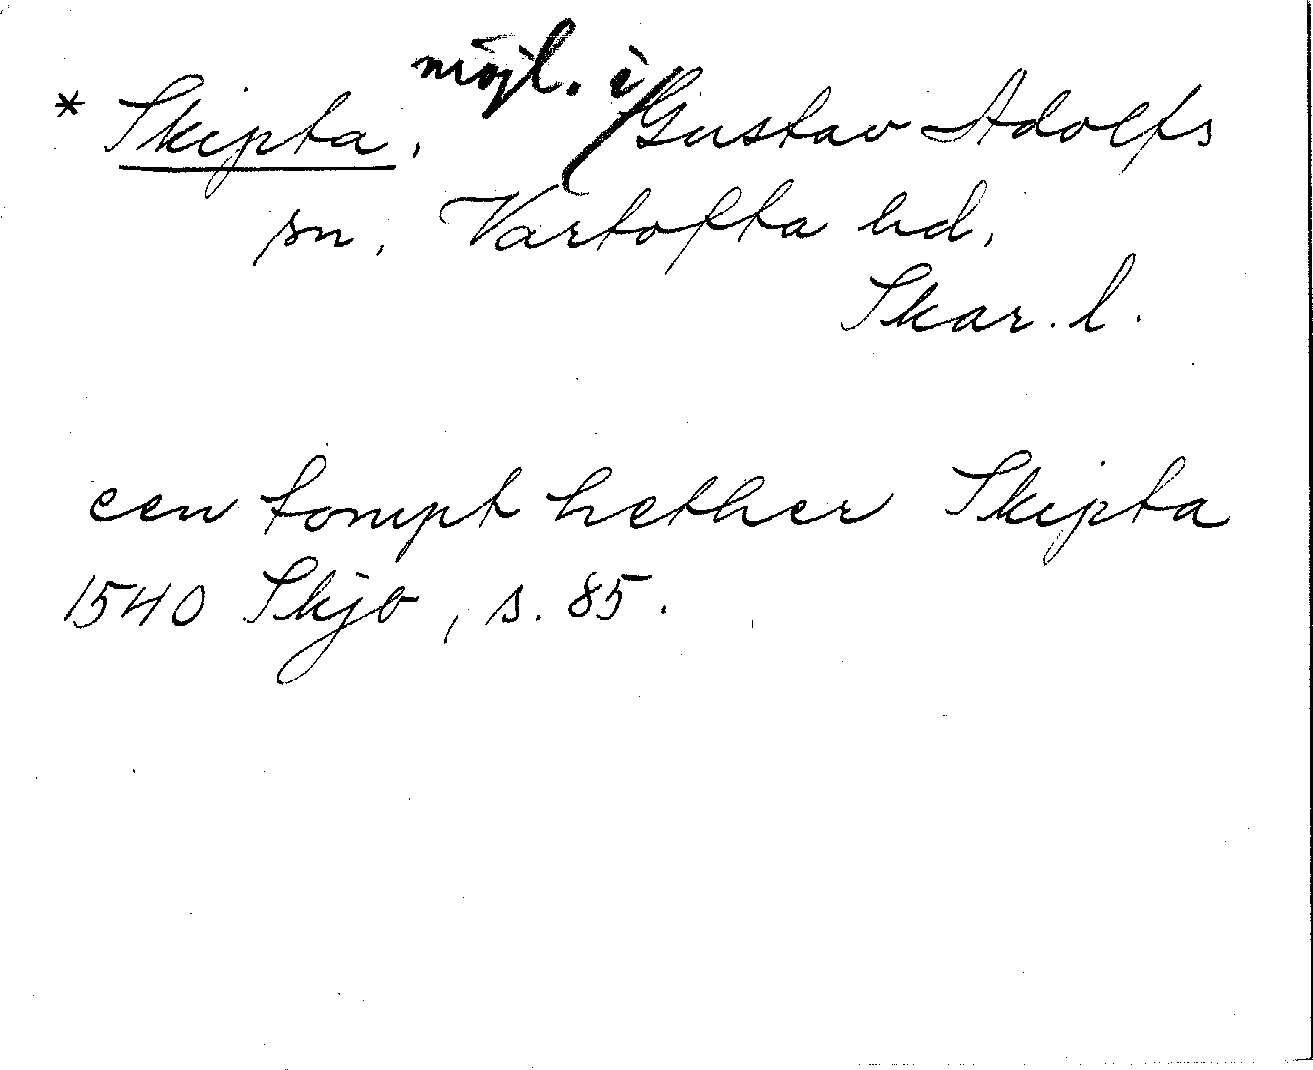 * Skipta, möjl. i Gustav Adolfs
sn, Vartofta hd,
Skar. l.
een tompt hether Skipta
1540 Skjb, s. 85.